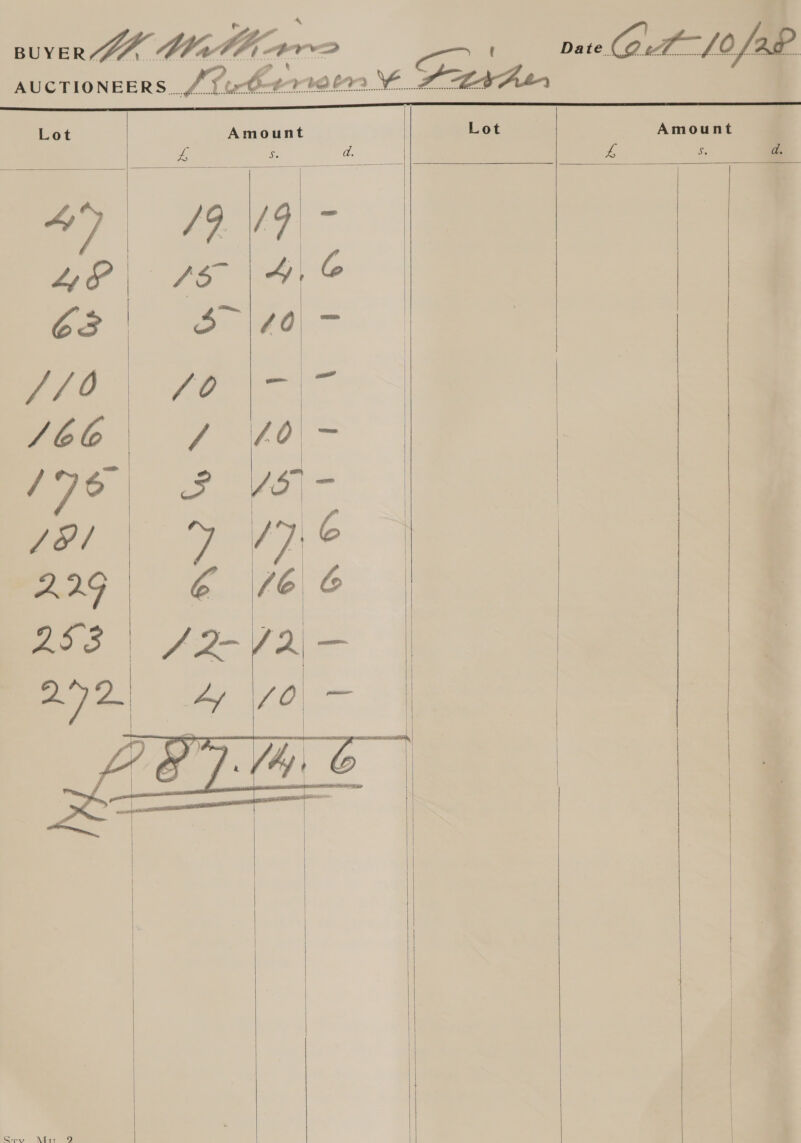 BUYER W. Watkins Date Oct 10/28
AUCTIONEERS Robinson & Fisher
Lot Amount Lot Amount
£ s. d. £ s. d.
47 19 19 -
48 15 4. 6
63 5 10 -
110 10 - -
166 1 10 -
175 3 15 -
181 7 17. 6
229 6 16 6
253 12- 12 -
272 4 10 -
£ 87. 14. 6